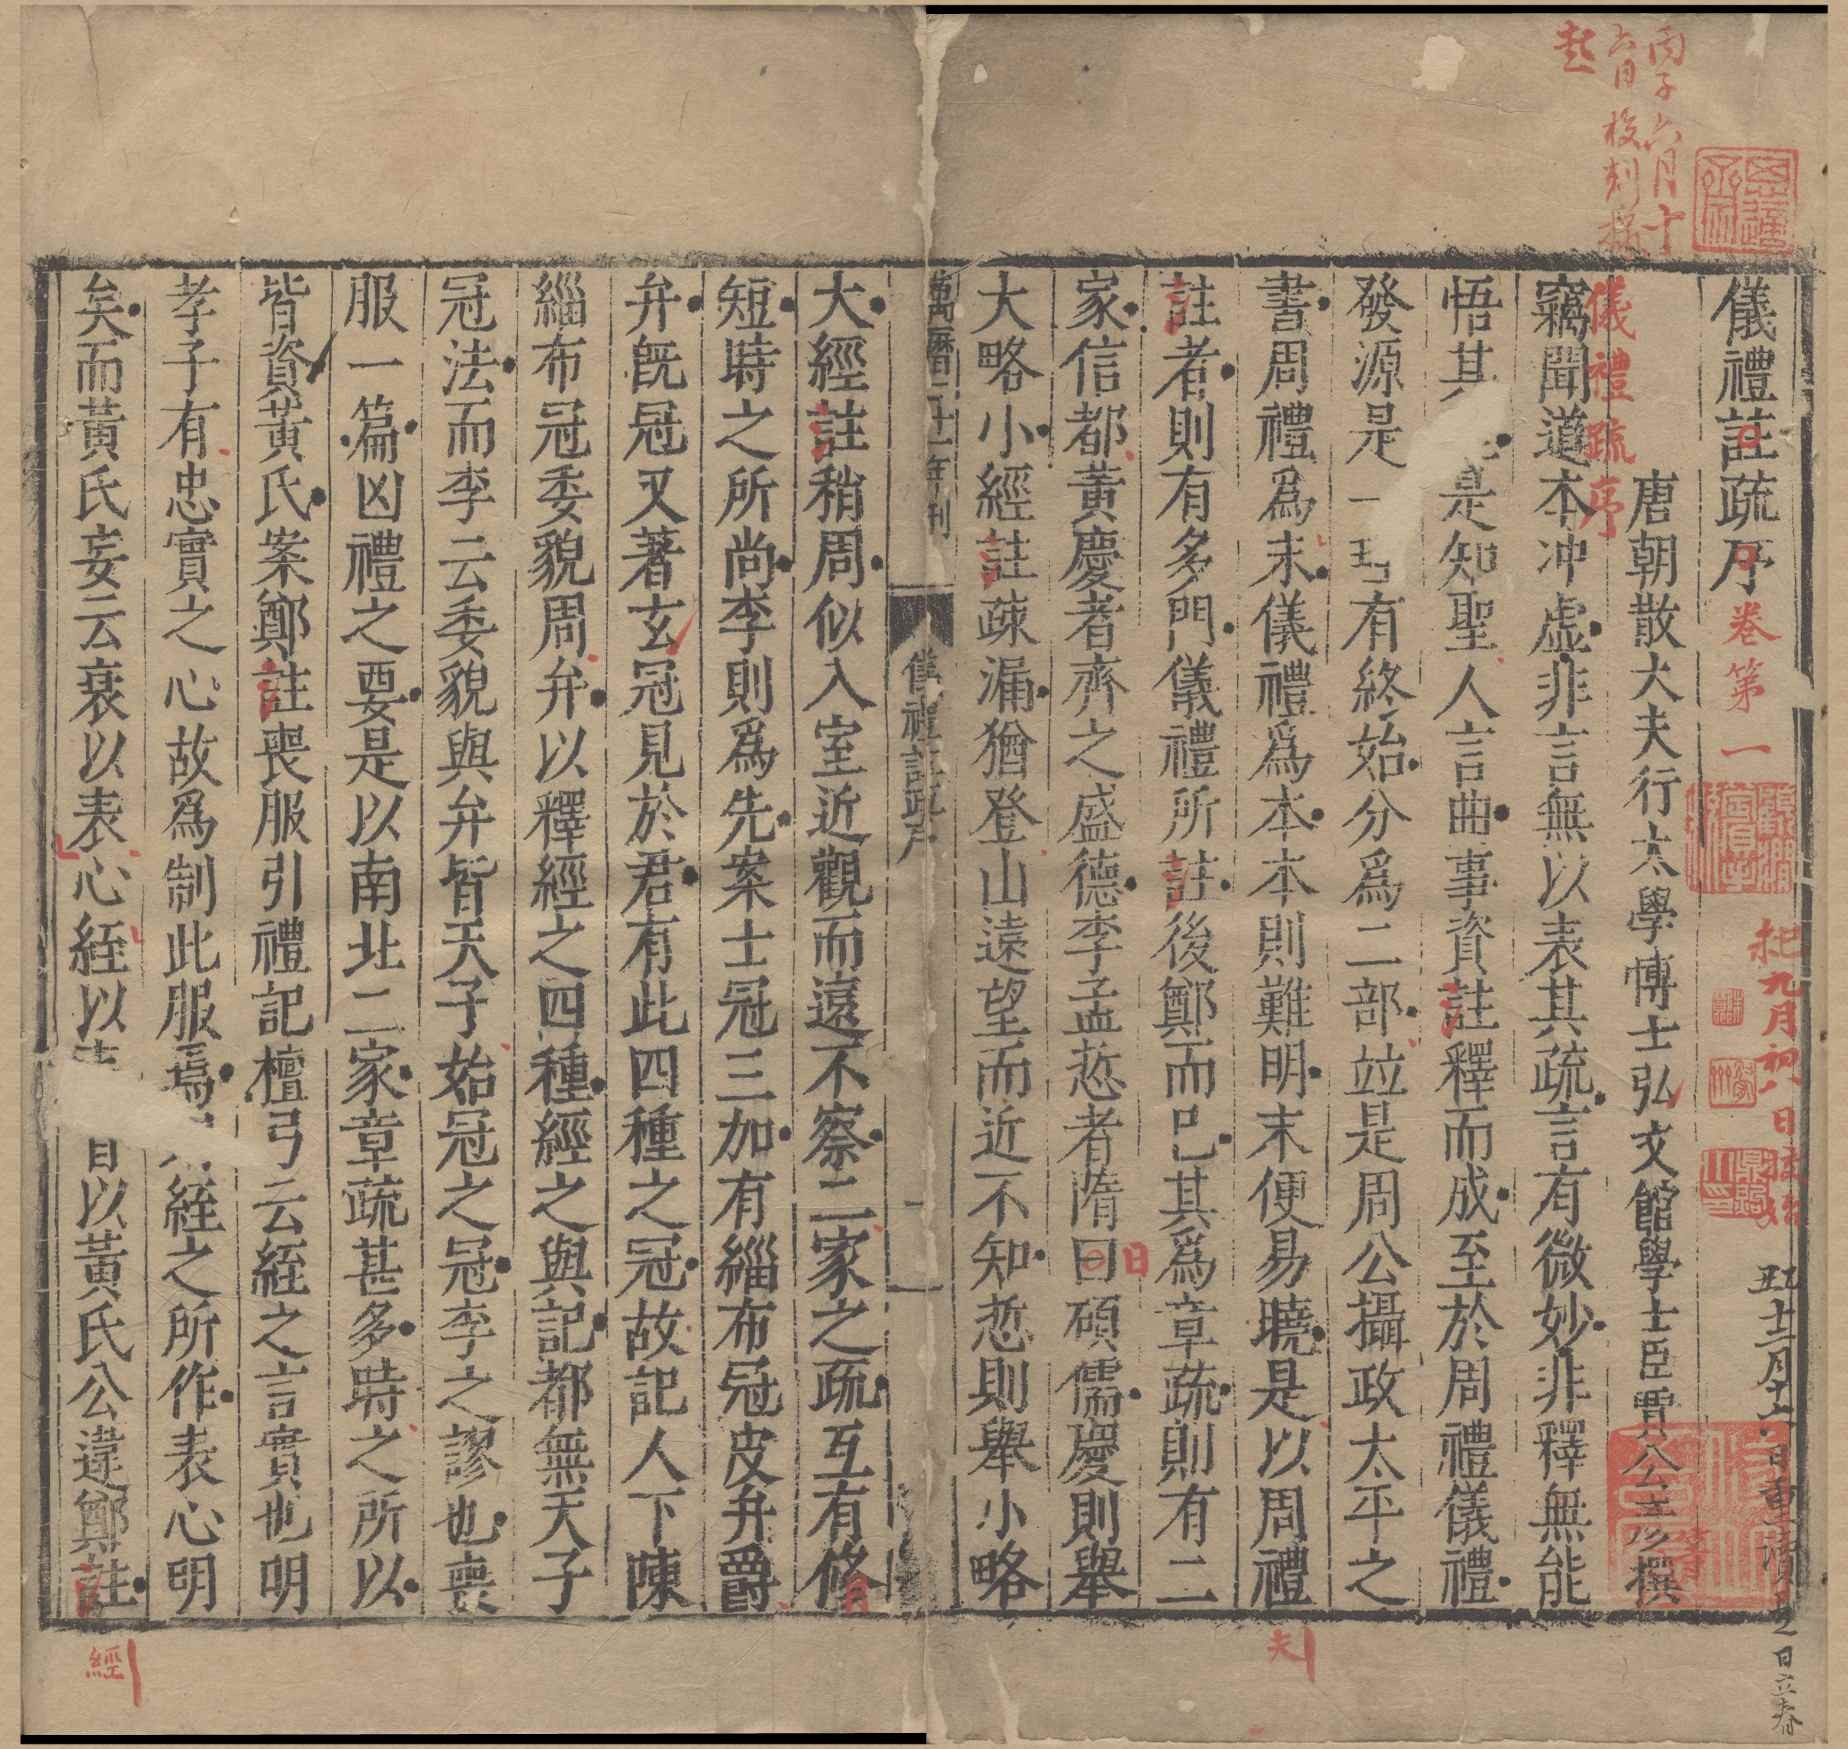 儀禮註疏序
卷第一
唐朝散大夫行太學博士弘文館學士臣賈公彥撰
儀禮疏序
竊聞道本冲虛非言無以表其疏言有微妙非釋無能
悟其是知聖人言曲事資註釋而成至於周禮儀禮
發源是一有終始分爲二部竝是周公攝政太平之
書周禮爲末儀禮爲本本則難明末便易曉是以周禮
註者則有多門儀禮所註後鄭而已其爲章疏則有二
家信都黃慶者齊之盛德李孟悊者隋曰碩儒慶則舉
大略小經註疎漏猶登山遠望而近不知悊則舉小略
萬曆二十一年刊
儀禮註疏序
一
大經註稍周似入室近觀而遠不察二家之疏互有修
短時之所尚李則爲先案士冠三加有緇布冠皮弁爵
弁既冠又著玄冠見於君有此四種之冠故記人下陳
緇布冠委貌周弁以釋經之四種經之與記都無天子
冠法而李云委貌與弁皆天子始冠之冠李之謬也喪
服一篇凶禮之要是以南北二家章疏甚多時之所以
皆資黃氏案鄭註喪服引禮記檀弓云絰之言實也明
孝子有忠實之心故爲制此服焉絰之所作表心明
矣而黃氏妄云衰以表心絰以以黃氏公違鄭註
丙子六月十
六日校刻
起
九月初八日
日
夫
經
十二月十六日重讀
日立春